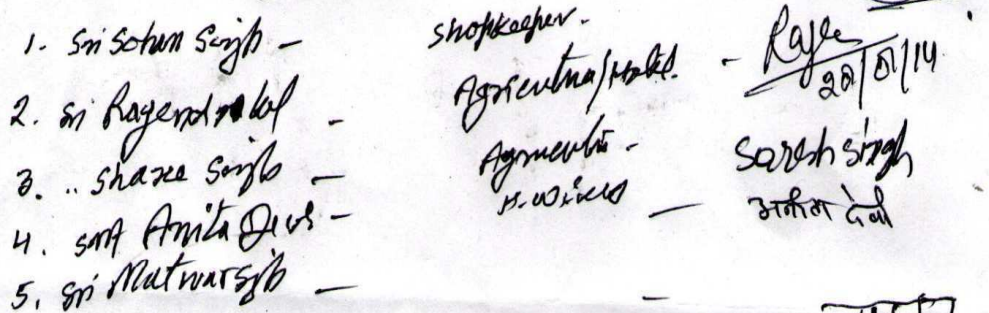 1. Sri Sohan Singh - Shopkeeper.
2. Sri Ragendra Lal - Agriculture/Hotel. - Raje 22/01/14
3. .. Sharee Singh - Agriculture - Suresh Singh
4. Smt Anita Devi - H. Wife - अनीता देवी
5. Sri Matwar Singh - -